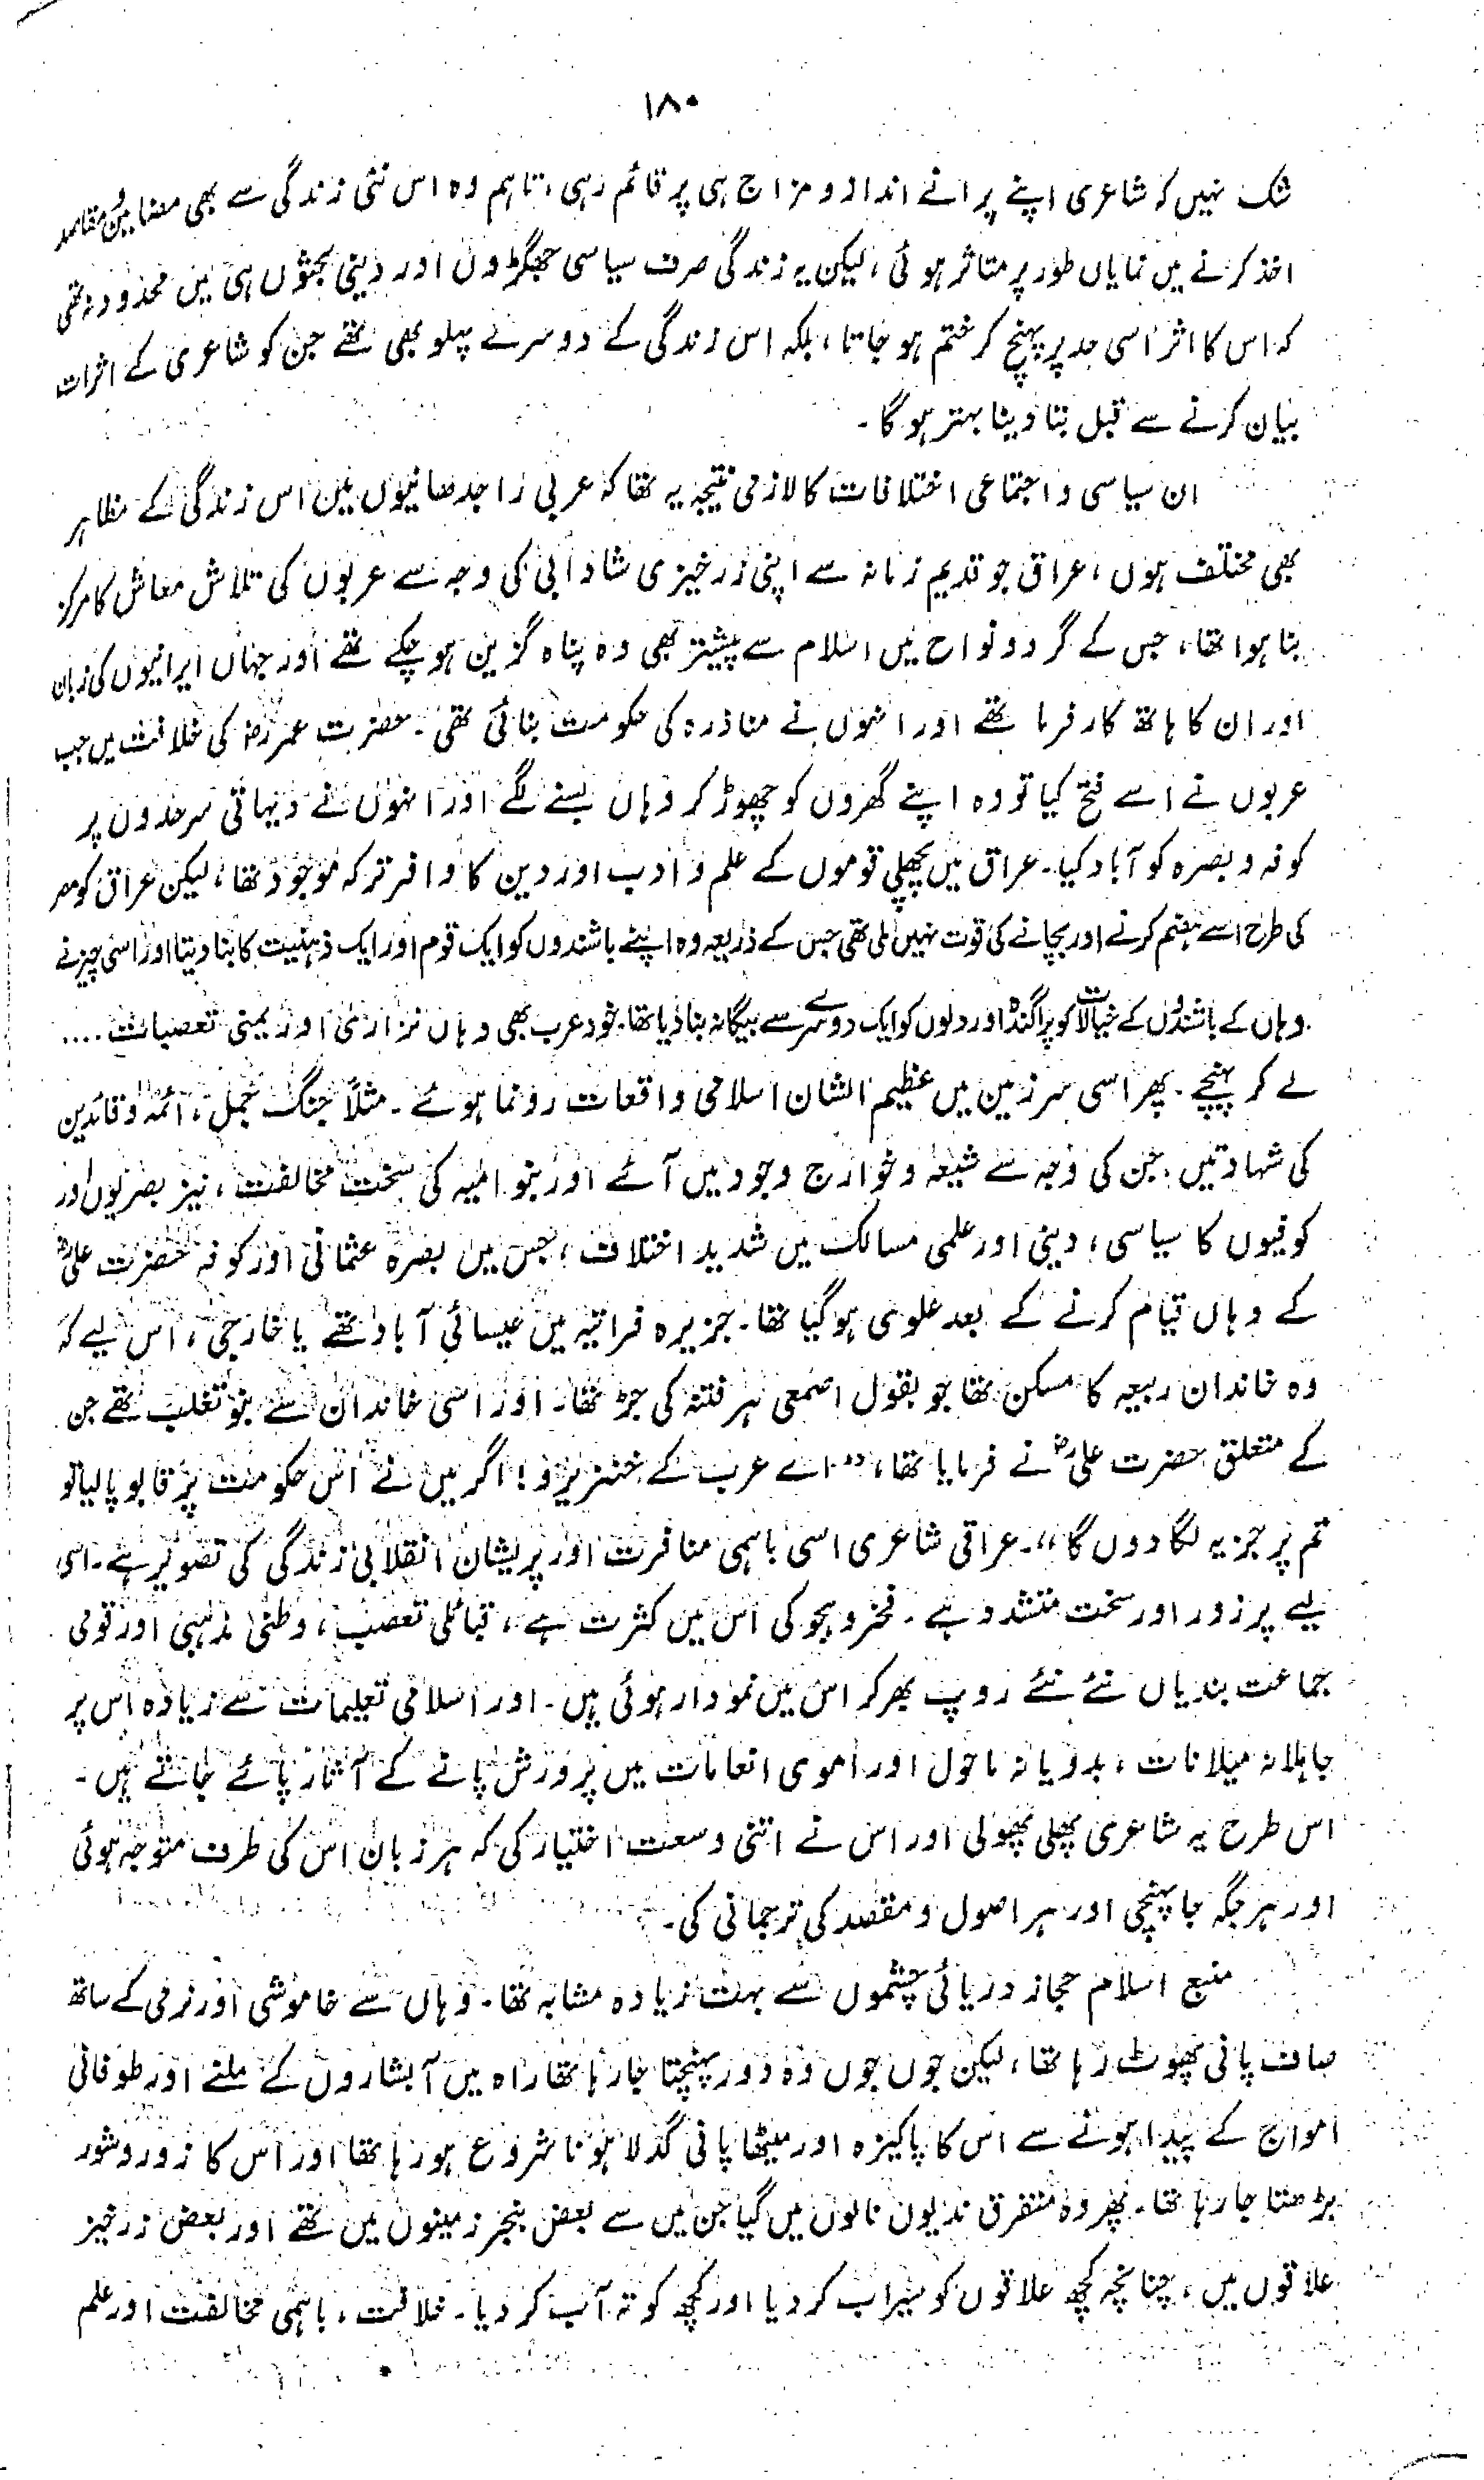 ۱۸۰
شک نہیں کہ شاعری اپنے پرانے انداز و مزاج ہی پر قائم رہی، تاہم وہ اس نئی زندگی سے بھی مضامین و مقاصد
اخذ کرنے میں نمایاں طور پر متاثر ہوئی، لیکن یہ زندگی صرف سیاسی جھگڑوں اور دینی بحثوں ہی میں محدود نہ تھی
کہ اس کا اثر اسی حد پر پہنچ کر ختم ہو جاتا، بلکہ اس زندگی کے دوسرے پہلو بھی تھے جن کو شاعری کے اثرات
بیان کرنے سے قبل بتا دینا بہتر ہو گا۔
ان سیاسی و اجتماعی اختلافات کا لازمی نتیجہ یہ تھا کہ عربی راجدھانیوں میں اس زندگی کے مظاہر
بھی مختلف ہوں، عراق جو قدیم زمانہ سے اپنی زرخیزی شادابی کی وجہ سے عربوں کی تلاش معاش کا مرکز
بنا ہوا تھا، جس کے گرد و نواح میں اسلام سے پیشتر بھی وہ پناہ گزین ہو چکے تھے اور جہاں ایرانیوں کی زبان
اور ان کا ہاتھ کار فرما تھے اور انہوں نے مناذرہ کی حکومت بنائی تھی۔ حضرت عمر رضؓ کی خلافت میں جب
عربوں نے اسے فتح کیا تو وہ اپنے گھروں کو چھوڑ کر وہاں بسنے لگے اور انہوں نے دیہاتی سرحدوں پر
کوفہ و بصرہ کو آباد کیا۔ عراق میں پچھلی قوموں کے علم و ادب اور دین کا وافر ترکہ موجود تھا، لیکن عراق کو مصر
کی طرح اسے ہضم کرنے اور بچانے کی قوت نہیں ملی تھی جس کے ذریعہ وہ اپنے باشندوں کو ایک قوم اور ایک ذہنیت کا بنا دیتا اور اسی چیز نے
وہاں کے باشندوں کے خیالات کو پراگندہ اور دلوں کو ایک دوسرے سے بیگانہ بنا دیا تھا۔ خود عرب بھی وہاں نزاری اور یمنی تعصبات ....
لے کر پہنچے۔ پھر اسی سرزمین میں عظیم الشان اسلامی واقعات رونما ہوئے۔ مثلاً جنگ جمل، ائمہ و قائدین
کی شہادتیں جن کی وجہ سے شیعہ و خوارج وجود میں آئے اور بنو امیہ کی سخت مخالفت، نیز بصریوں اور
کوفیوں کا سیاسی، دینی اور علمی مسالک میں شدید اختلاف، جس میں بصرہ عثمانی اور کوفہ حضرت علیؓ
کے وہاں قیام کرنے کے بعد علوی ہو گیا تھا۔ جزیرہ فراتیہ میں عیسائی آباد تھے یا خارجی، اس لیے کہ
وہ خاندان ربیعہ کا مسکن تھا جو بقول اصمعی ہر فتنہ کی جڑ تھا۔ اور اسی خاندان سے بنو تغلب تھے جن
کے متعلق حضرت علیؓ نے فرمایا تھا، "اے عرب کے خنزیرو! اگر میں نے اس حکومت پر قابو پا لیا تو
تم پر جزیہ لگا دوں گا"۔ عراقی شاعری اسی باہمی منافرت اور پریشان انقلابی زندگی کی تصویر ہے۔ اسی
لیے پر زور اور سخت متشدد ہے۔ فخر و ہجو کی اس میں کثرت ہے، قبائلی تعصب، وطنی مذہبی اور قومی
جماعت بندیاں نئے نئے روپ بھر کر اس میں نمودار ہوئی ہیں۔ اور اسلامی تعلیمات سے زیادہ اس پر
جاہلانہ میلانات، بدویانہ ماحول اور اموی انعامات میں پرورش پانے کے آثار پائے جاتے ہیں۔
اس طرح یہ شاعری پھلی پھولی اور اس نے اتنی وسعت اختیار کی کہ ہر زبان اس کی طرف متوجہ ہوئی
اور ہر جگہ جا پہنچی اور ہر اصول و مقصد کی ترجمانی کی۔
منبع اسلام حجاز دریائی چشموں سے بہت زیادہ مشابہ تھا۔ وہاں سے خاموشی اور نرمی کے ساتھ
صاف پانی پھوٹ رہا تھا، لیکن جوں جوں وہ دور پہنچتا جا رہا تھا راہ میں آبشاروں کے ملنے اور طوفانی
امواج کے پیدا ہونے سے اس کا پاکیزہ اور میٹھا پانی گدلا ہونا شروع ہو رہا تھا اور اس کا زور و شور
بڑھتا جا رہا تھا۔ پھر وہ متفرق ندیوں نالوں میں گیا جن میں سے بعض بنجر زمینوں میں تھے اور بعض زرخیز
علاقوں میں، چنانچہ کچھ علاقوں کو سیراب کر دیا اور کچھ کو تہ آب کر دیا۔ خلافت، باہمی مخالفت اور علم